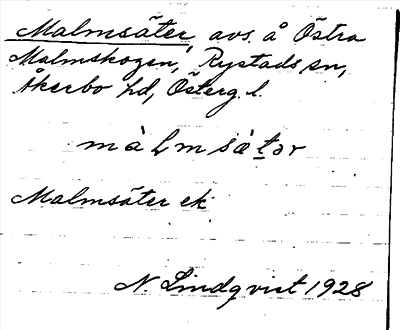 Malmsäter avs. å Östra
Malmskogen, Rystads sn,
Åkerbo hd, Österg. l.
màlmsät̠ər
Malmsäter ek
N. Lindqvist 1928